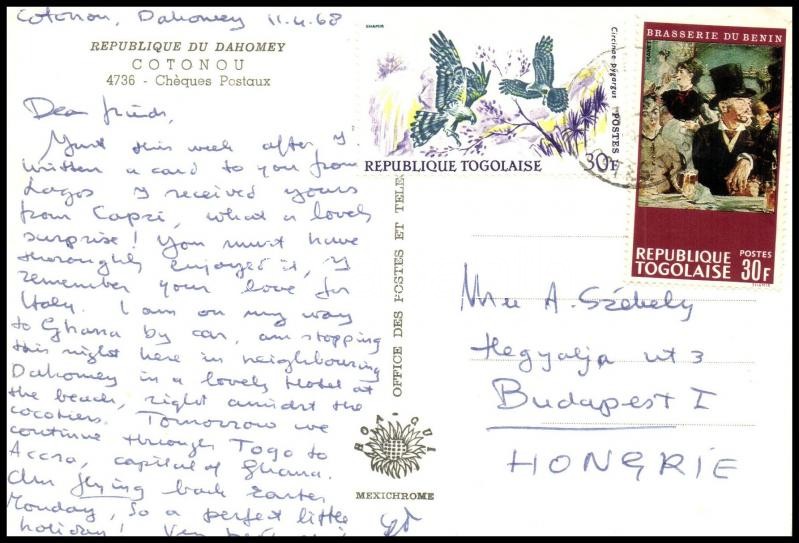 Cotonou, Dahomey 11.4.68
REPUBLIQUE DU DAHOMEY
COTONOU
4736 - Chèques Postaux
Dear friends,
Just this week after I
written a card to you from
Lagos I received yours
from Capri, what a lovely
surprise! You must have
thoroughly enjoyed it, I
remember your love for
Italy. I am on my way
to Ghana by car, am stopping
this night here in neighbouring
Dahomey in a lovely Hotel at
the beach, right amidst the
cocotiers. Tomorrow we
continue through Togo to
Accra, capital of Ghana.
Am flying back Easter
Monday, so a perfect little
holiday! Very
OFFICE DES POSTES ET TELE
HOA-QUI
MEXICHROME
SHAMIR
Circinae pygargus
POSTES
REPUBLIQUE TOGOLAISE 30F
BRASSERIE DU BENIN
MANET
REPUBLIQUE POSTES
TOGOLAISE 30F
SHAMIR
A. Székely
Hegyalja ut 3
Budapest I
HONGRIE